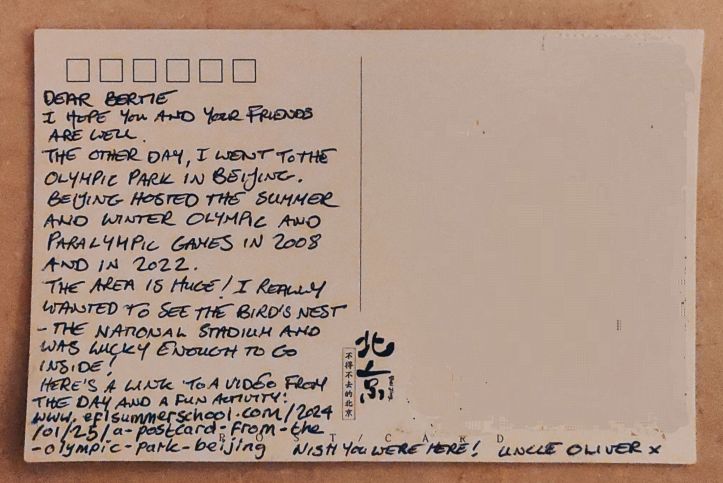 DEAR BERTIE
I HOPE YOU AND YOUR FRIENDS
ARE WELL.
THE OTHER DAY, I WENT TO THE
OLYMPIC PARK IN BEIJING.
BEIJING HOSTED THE SUMMER
AND WINTER OLYMPIC AND
PARALYMPIC GAMES IN 2008
AND IN 2022.
THE AREA IS HUGE! I REALLY
WANTED TO SEE THE BIRD'S NEST
- THE NATIONAL STADIUM AND
WAS LUCKY ENOUGH TO GO
INSIDE!
HERE'S A LINK TO A VIDEO FROM
THE DAY AND A FUN ACTIVITY:
www.eflsummerschool.com/2024
/01/25/a-postcard-from-the
-olympic-park-beijing
WISH YOU WERE HERE! UNCLE OLIVER x
北京
不得不去的北京
POST/CARD